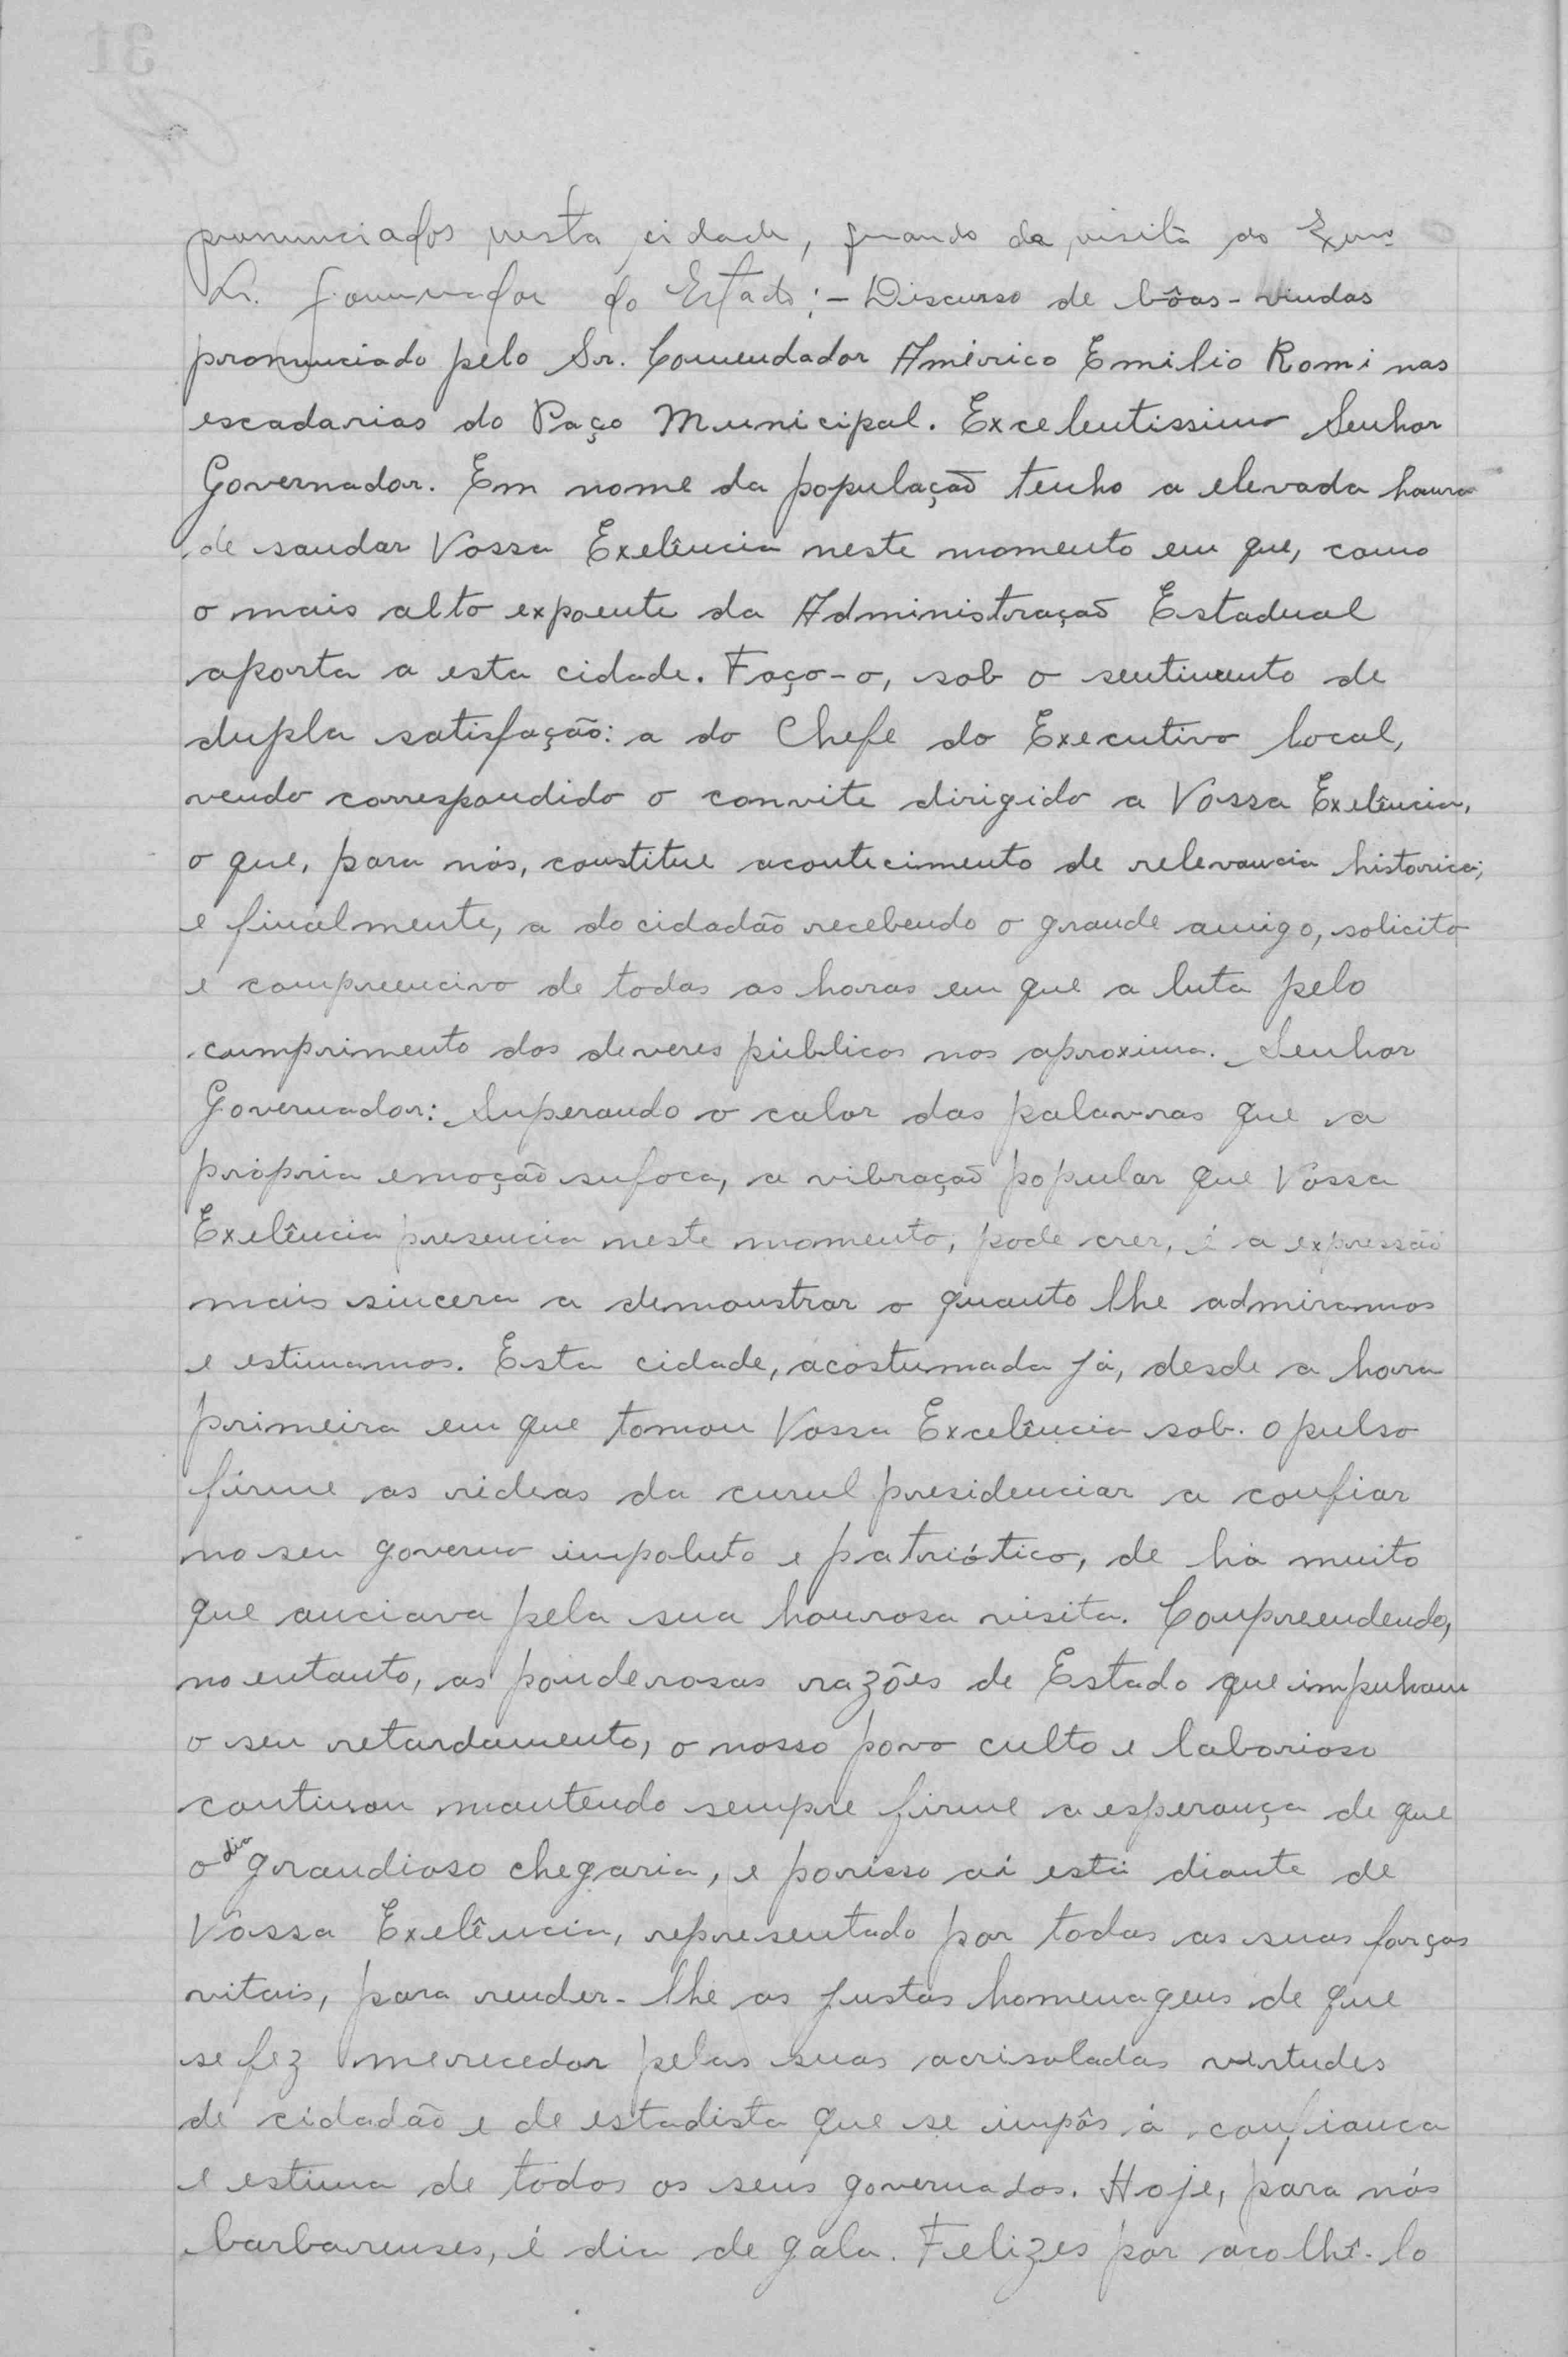 pronunciados nesta cidade, quando da visita do Exmo
Sr. Governador do Estado:- Discurso de bôas-vindas
pronunciado pelo Sr. Comendador Américo Emilio Romi nas
escadarias do Paço Municipal. Excelentissimo Senhor
Governador. Em nome da população tenho a elevada honra
de saudar Vossa Exelência neste momento em que, como
o mais alto expoente da Administração Estadual
aporta a esta cidade. Faço-o, sob o sentimento de
dupla satisfação: a do Chefe do Executivo local,
vendo correspondido o convite dirigido a Vossa Exelência,
o que, para nós, constitue acontecimento de relevancia historica;
e finalmente, a do cidadão recebendo o grande amigo, solicito
e compreencivo de todas as horas em que a luta pelo
cumprimento dos deveres públicos nos aproxima. Senhor
Governador: Superando o calor das palavras que a
própria emoção sufoca, a vibração popular que Vossa
Exelência presencia neste momento, pode crer, é a expressão
mais sincera a demonstrar o quanto lhe admiramos
e estimamos. Esta cidade, acostumada já, desde a hora
primeira em que tomou Vossa Excelência sob. o pulso
firme as rideas da curul presidenciar a confiar
no seu governo impoluto e patriótico, de há muito
que anciava pela sua honrosa visita. Compreendendo,
no entanto, as ponderosas razões de Estado que impunham
o seu retardamento, o nosso povo culto e laborioso
continou mantendo sempre firme a esperança de que
o dia grandioso chegaria, e porisso aí está diante de
Vossa Exelência, representado por todas as suas forças
vitais, para render-lhe as justas homenagens de que
se fez merecedor pelas suas acrisoladas virtudes
de cidadão e de estadista que se impôs á confianca
e estima de todos os seus governados. Hoje, para nós
barbarenses, é dia de gala. Felizes por acolhê-lo